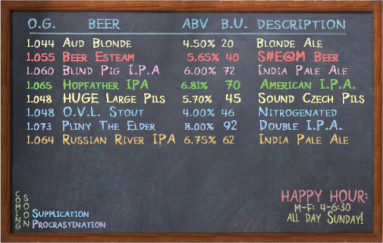 O.G. BEER ABV B.U. DESCRIPTION
1.044 Aud Blonde 4.50% 20 Blonde Ale
1.055 Beer Esteam 5.65% 40 S#E@M Beer
1.060 Blind Pig I.P.A 6.00% 72 India Pale Ale
1.065 Hopfather IPA 6.81% 70 American I.P.A.
1.048 HUGE Large Pils 5.70% 45 Sound Czech Pils
1.048 O.V.L. Stout 4.00% 46 Nitrogenated
1.073 Pliny The Elder 8.00% 92 Double I.P.A.
1.064 Russian River IPA 6.75% 62 India Pale Ale
COMING SOON
Supplication
Procrasyination
HAPPY HOUR:
M-F: 4-6:30
ALL DAY SUNDAY!